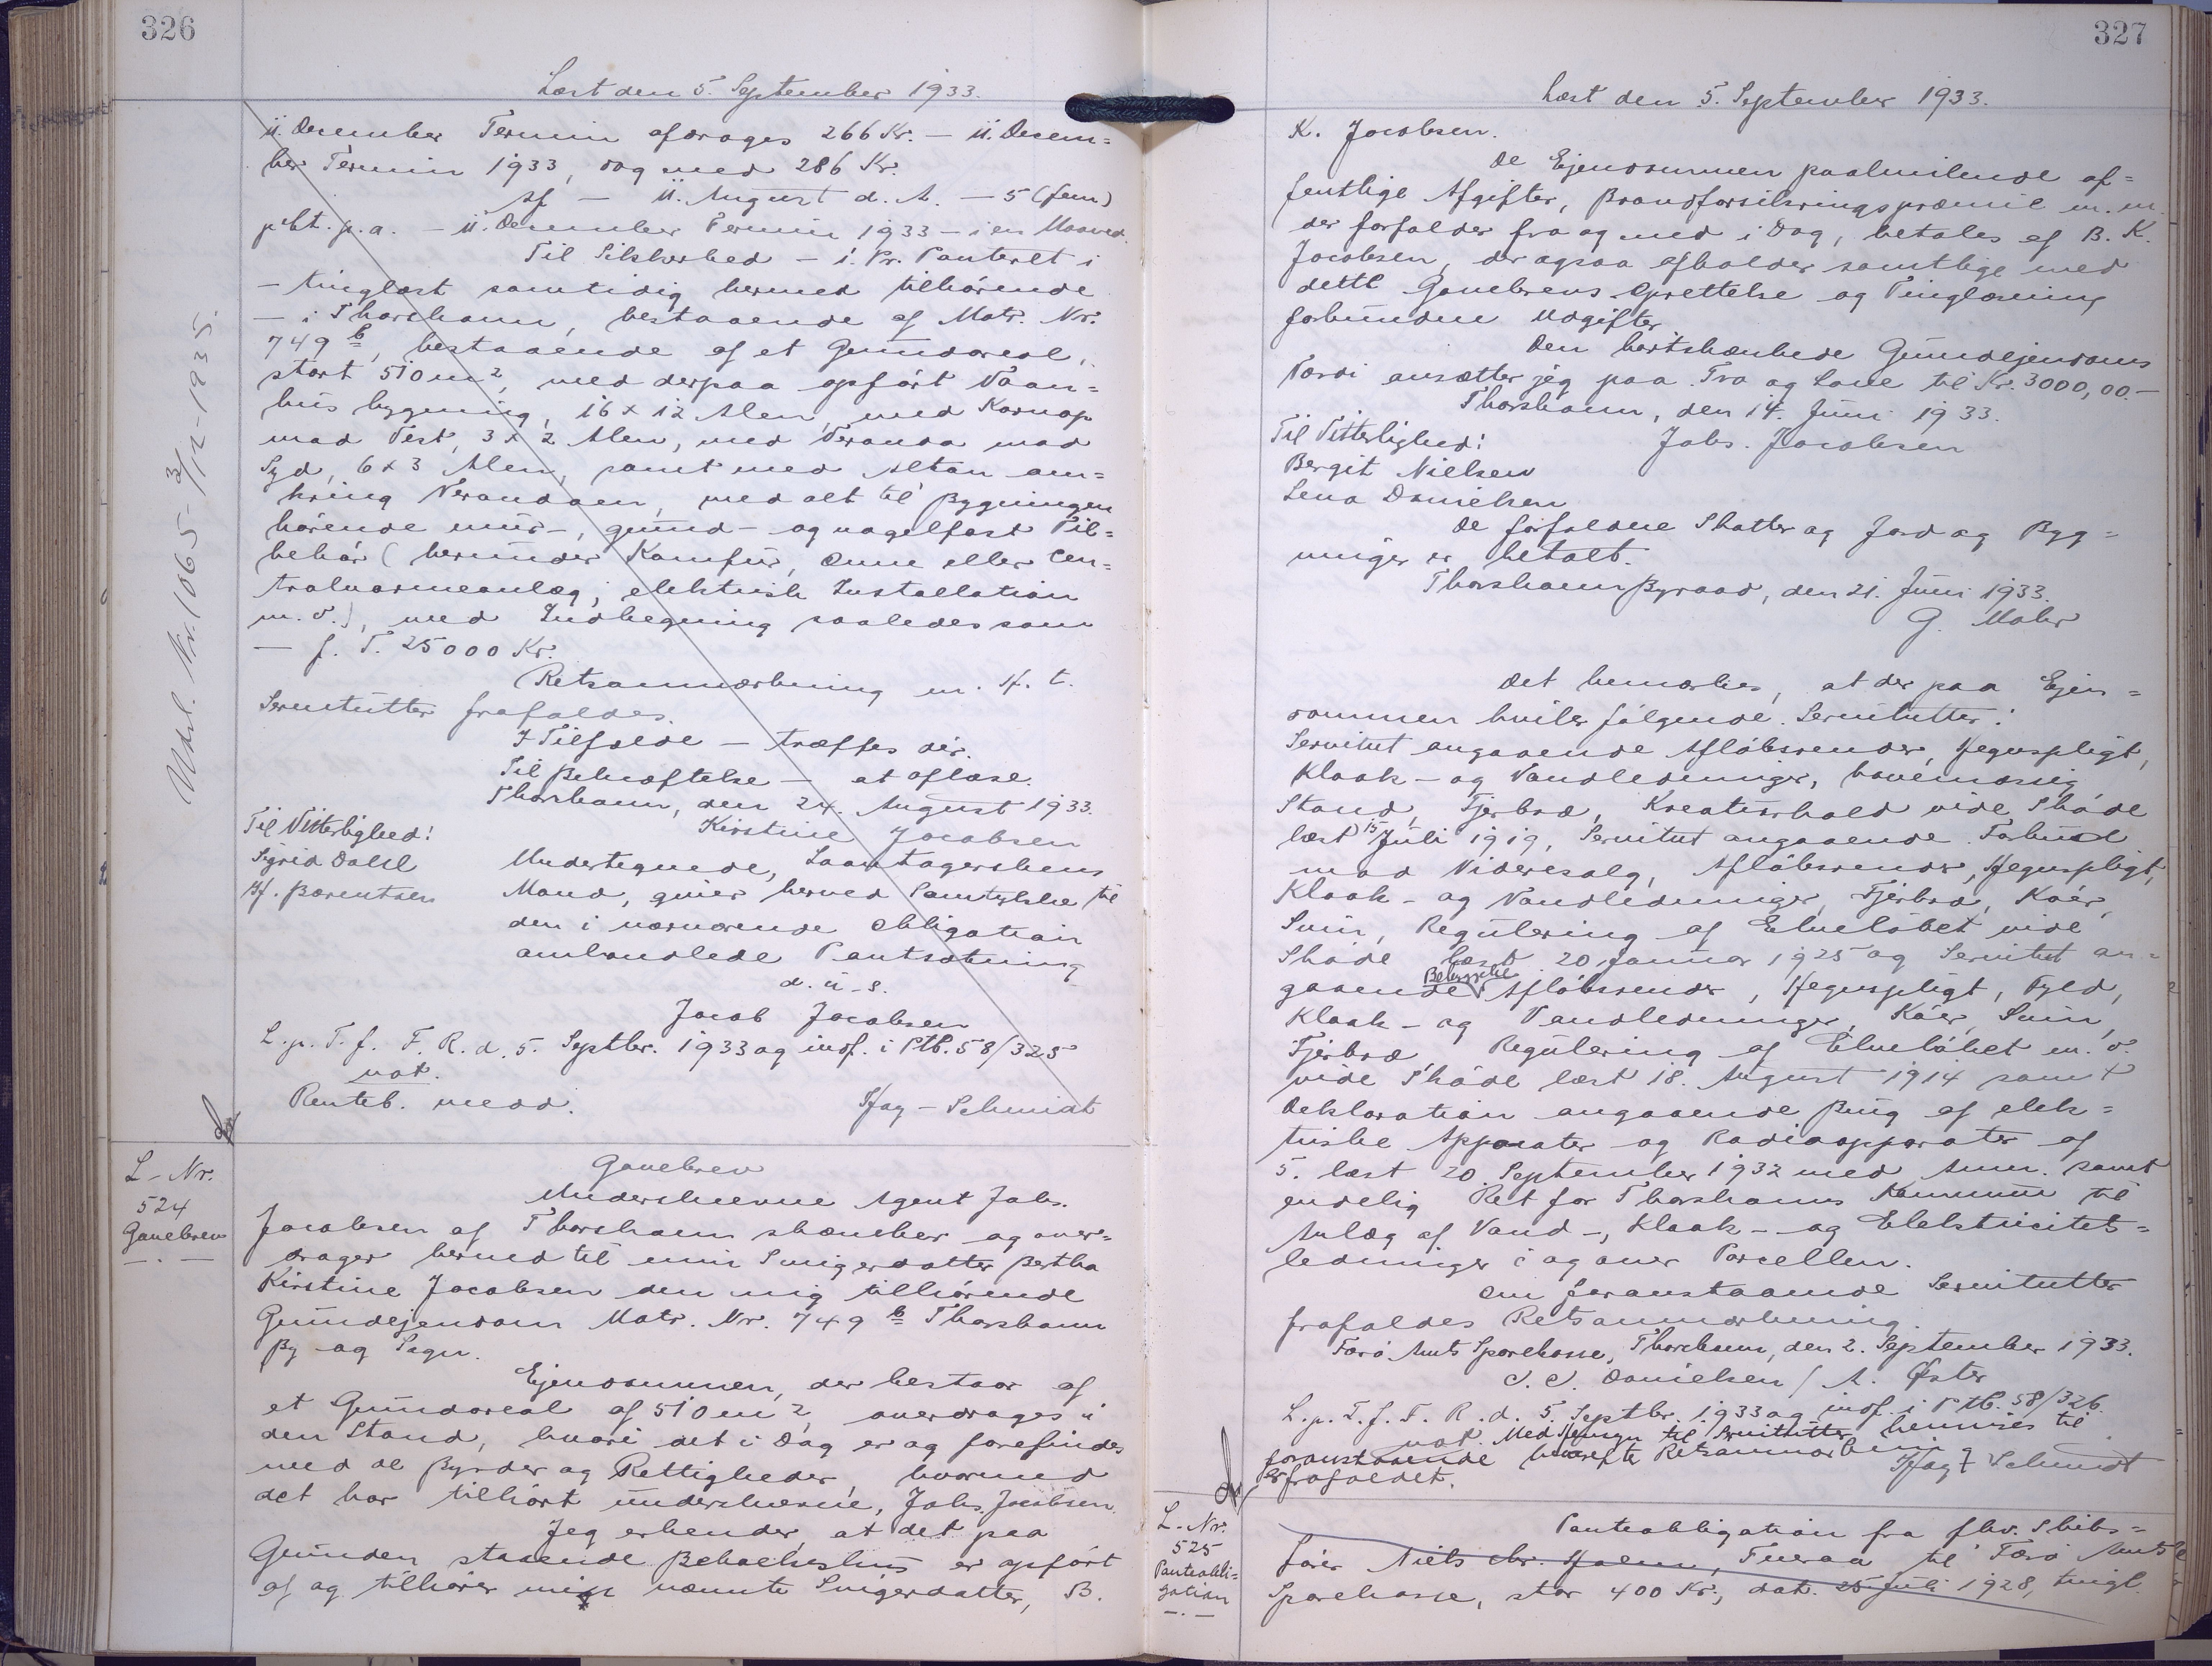 326
Læst den 5. September 1933.
11. December Termin afdrages 266 Kr. – 11. Decem=
ber Termin 1933, dog med 286 Kr.
Af – 11. August d. A. – 5 (fem)
pCt. p.a. – 11. December Termin 1933 – i en Maaned.
Til Sikkerhed – 1. Pr. Panteret i
– tinglæst samtidig hermed tilhørende
– i Thorshavn, bestaaende af Matr. Nr.
749 b, bestaaende af et Grundareal,
stort 510 m², med derpaa opført Vaan=
hus bygning, 16 x 12 Alen med Karnap
mod Vest, 3 x 2 Alen, med Veranda mod
Syd, 6 x 3 Alen, samt med Altan om=
kring Verandaen, med alt til Bygningen
hørende mur-, grund- og nagelfast Til=
behør (herunder Komfur, Ovne eller Cen=
tralvarmeanlæg, elektrisk Installation
m. v.), med Indhegning saaledes som
– f. T. 25000 Kr.
Retsanmærkning m. H. t.
Servitutter frafaldes.
I Tilfælde – træffes der.
Til Bekræftelse – at aflæse.
Thorshavn, den 24. August 1933.
Til Vitterlighed! Kirstine Jacobsen
Sigrid Dahl Undertegnede, Laantagerskens
H. Bærentsen Mand, giver herved Samtykke til
den i nærværende Obligation
omhandlede Pantsætning
d. u. s.
Jacob Jacobsen
L. p. T. f. F. R. d. 5. Septbr. 1933 og indf. i Ptb. 58/325
not.
Renteb. medd. Hag-Schmidt
Udsl. Nr. 1065 - 3/12-1935.
L-Nr.
524
Gavebrev
Gavebrev
Underskrevne Agent Johs.
Jacobsen af Thorshavn skænker og over=
drager hermed til min Svigerdatter Bertha
Kirstine Jacobsen den mig tilhørende
Grundejendom Matr. Nr. 749 b Thorshavn
By og Sogn.
Ejendommen, der bestaar af
et Grundareal af 510 m², overdrages i
den Stand, hvori det i Dag er og forefindes
med de Byrder og Rettigheder, hvormed
det har tilhørt underskrevne, Johs. Jacobsen.
Jeg erkender, at det paa
Grunden staaende Beboelseshus er opført
af og tilhører min nævnte Svigerdatter, B.
327
Læst den 5. September 1933.
K. Jacobsen.
De Ejendommen paahvilende of=
fentlige Afgifter, Brandforsikringspræmie m. m.
der forfalder fra og med i Dag, betales af B. K.
Jacobsen, der ogsaa afholder samtlige med
dette Gavebrevs Oprettelse og Tinglæsning
forbundne Udgifter.
Den bortskænkede Grundejendoms
Værdi ansætter jeg paa Tro og Love til Kr. 3000,00.–
Thorshavn, den 14. Juni 1933.
Til Vitterlighed! Johs. Jacobsen
Bergit Nielsen
Lena Danielsen
De forfaldne Skatter og Jord og Byg=
ninger er betalt.
Thorshavn Byraad, den 21. Juni 1933.
G. Mohr
Det bemærkes, at der paa Ejen=
dommen hviler følgende Servitutter:
Servitut angaaende Afløbsrender, Hegnspligt,
Kloak- og Vandledninger, havemæssig
Stand, Fjerbræ, Kreaturhold vide Skøde
læst 15 Juli 1919, Servitut angaaende Forbud
mod Videresalg, Afløbsrender, Hegnspligt,
Kloak- og Vandledninger, Fjerbræ, Køer,
Svin, Regulering af Elveløbet vide
Skøde læst 20. Januar 1925 og Servitut an=
gaaende Bebyggelse Afløbsrender, Hegnspligt, Fyld,
Kloak- og Vandledninger, Køer, Svin,
Fjerbræ, Regulering af Elveløbet m. v.
vide Skøde læst 18. August 1914 samt
Deklaration angaaende Brug af elek=
triske Apparater og Radioapparater af
5. læst 20. September 1932 med Anm. samt
endelig Ret for Thorshavns Kommune til
Anlæg af Vand-, Kloak- og Elektricitets=
ledninger i og over Parcellen.
Om foranstaaende Servitutter
frafaldes Retsanmærkning.
Færø Amts Sparekasse, Thorshavn, den 2. September 1933.
C. C. Danielsen / A. Øster
L. p. T. f. F. R. d. 5. Septbr. 1933 og indf. i Ptb. 58/326.
not. Med Hensyn til Servitutter henvises til
foranstaaende hvorefter Retsanmærkning
er frafaldet. Hag-Schmidt
L-Nr.
525
Panteobli=
gation
Panteobligation fra fhv. Skibs=
fører Niels Chr. Holm, Tveraa til Færø Amts
Sparekasse, stor 400 Kr., dat. 25 Juli 1928, tingl.